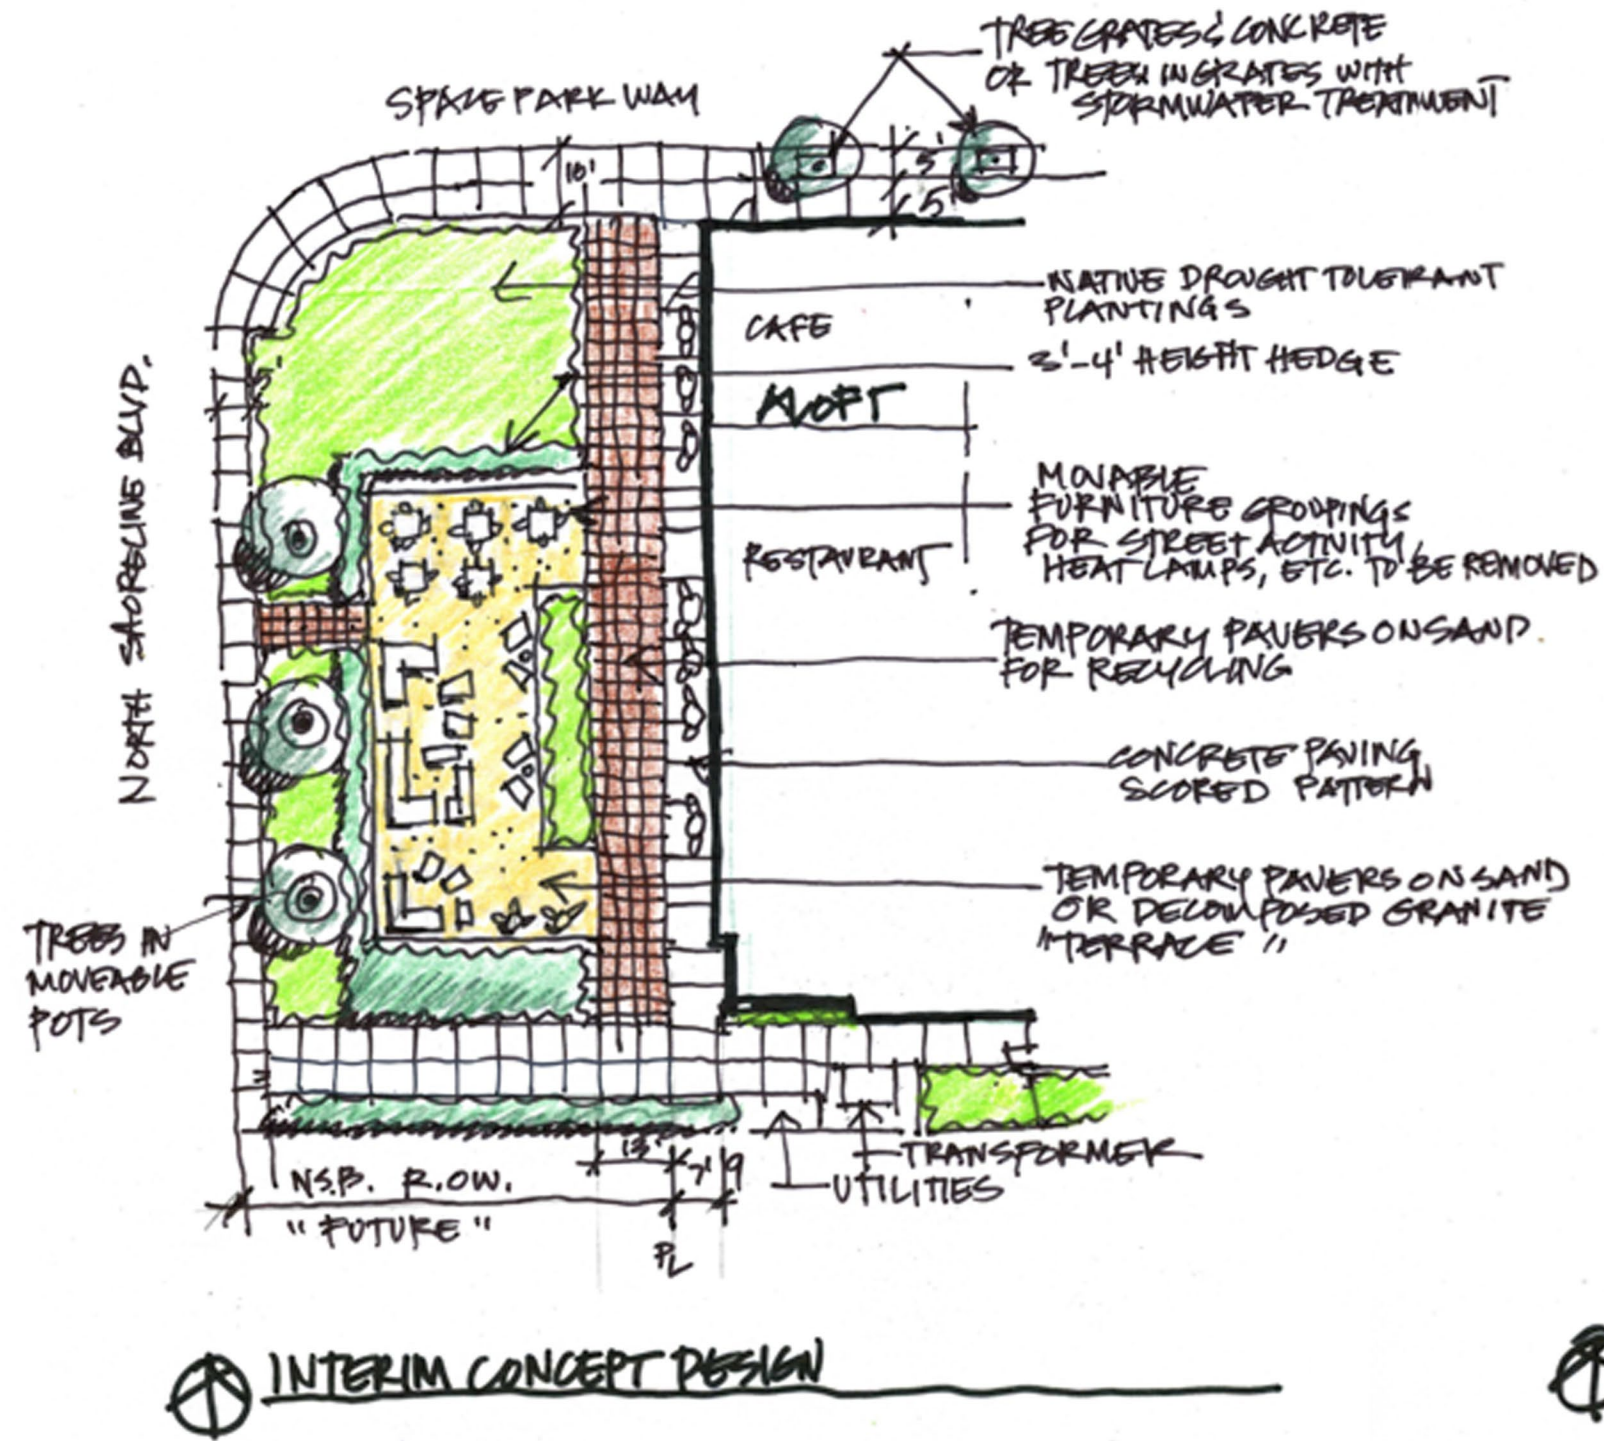 TREE GRATES & CONCRETE
OR TREES IN GRATES WITH
STORMWATER TREATMENT
SPACE PARK WAY
10'
5'
5'
NATIVE DROUGHT TOLERANT
PLANTINGS
CAFE
3'-4' HEIGHT HEDGE
5'
ALOFT
NORTH SHORELINE BLVD.
MOVABLE
FURNITURE GROUPINGS
FOR STREET ACTIVITY,
HEAT LAMPS, ETC. TO BE REMOVED
RESTAURANT
TEMPORARY PAVERS ON SAND
FOR RECYCLING
CONCRETE PAVING
SCORED PATTERN
TEMPORARY PAVERS ON SAND
OR DECOMPOSED GRANITE
"TERRACE"
TREES IN
MOVEABLE
POTS
13'
7'
TRANSFORMER
UTILITIES
N.S.B. R.O.W.
"FUTURE"
PL
INTERIM CONCEPT DESIGN